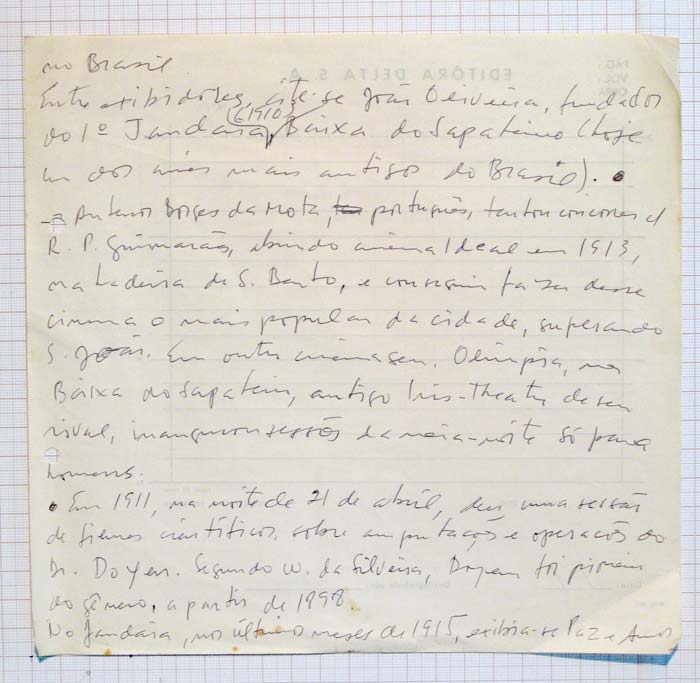 no Brasil.
Entre exibidores, cite-se João Oliveira, fundador
do 1º Jandaia (1910), Baixa do Sapateiro (hoje
um dos mais antigos do Brasil).
- Antenor Borges da Mota, português, tentou concorrer c/
R. P. Guimarães, abrindo cinema Ideal em 1913,
na Ladeira de S. Bento, e conseguiu fazer desse
cinema o mais popular da cidade, superando
S. João. Em outro cinema seu, Olímpia, na
Baixa do Sapateiro, antigo Iris-Theatre de seu
rival, inaugurou sessões da meia-noite só para
homens.
Em 1911, na noite de 21 de abril, deu uma sessão
de filmes científicos sobre amputações e operações do
Dr. Doyen. Segundo W. da Silveira, Doyen foi pioneiro
do gênero, a partir de 1898.
No Jandaia, nos últimos meses de 1915, exibia-se Paz e Amor
EDITÔRA DELTA S. A.
PÁG.
VOL.